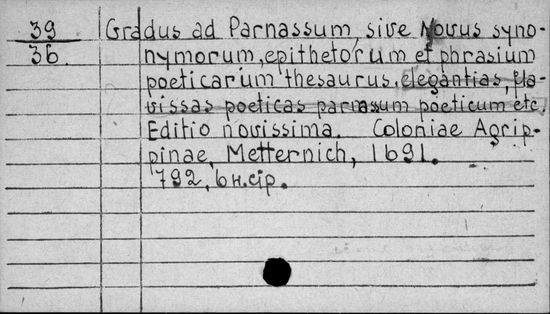 39 Gradus ad Parnassum, sive Novus syno-
36. nymorum, epithetorum et phrasium
poeticarum thesaurus, elegantias, fla-
vissas poeticas parnassum poeticum etc.
Editio novissima. Coloniae Agrip-
pinae, Metternich, 1691.
792, 6 н.стр.